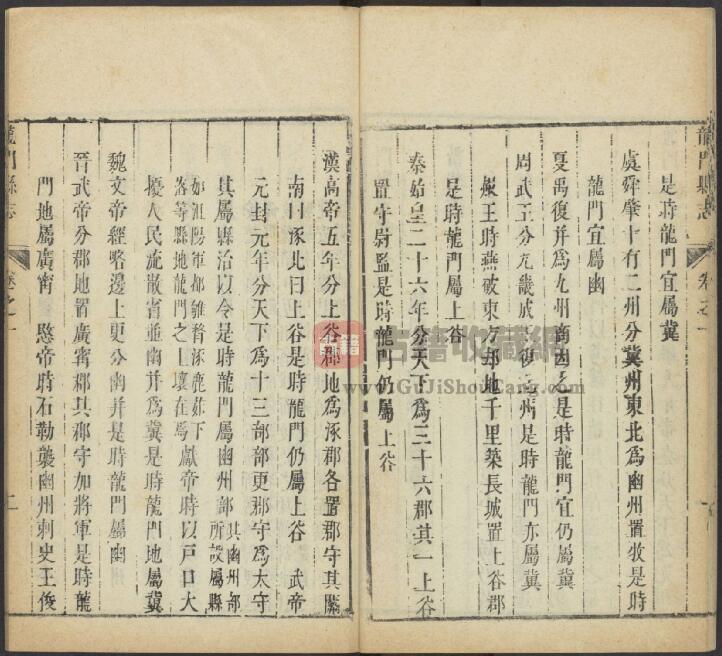 龍門縣志
卷之一
是時龍門宜屬冀
虞舜肇十有二州分冀州東北為幽州置牧是時
龍門宜屬幽
夏禹復并為九州商因之是時龍門宜仍屬冀
周武王分九畿成王復之州是時龍門亦屬冀
赧王時燕破東方部地千里築長城置上谷郡
是時龍門屬上谷
秦始皇二十六年分天下為三十六郡其一上谷
置守尉監是時龍門仍屬上谷
漢高帝五年分上谷郡地為涿郡各置郡守其關
南曰涿北曰上谷是時龍門仍屬上谷 武帝
元封元年分天下為十三部部更郡守為太守
其屬縣治以令是時龍門屬幽州部其幽州部所設屬縣
如沮陽軍都雊瞀涿鹿茹下
落等縣地龍門之土壤在焉 獻帝時以戶口大
擾人民流散省並幽并為冀是時龍門地屬冀
魏文帝經略邊上更分幽并是時龍門屬幽
晉武帝分郡地置廣甯郡其郡守加將軍是時龍
門地屬廣甯 愍帝時石勒襲幽州刺史王俊
龍門縣志
卷之一
二
古籍收藏網
www.GuJiShouCang.com